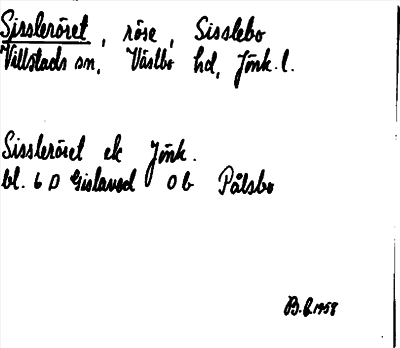 Sissleröret, röse, Sisslebo
Villstads sn, Västbo hd, Jönk. l.
Sissleröret ek Jönk.
bl. 6 D Gislaved 0 b Pålsbo
B.G. 1958